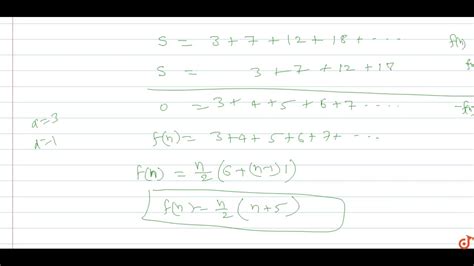 S = 3 + 7 + 12 + 18 + ----  f(n)
S = 3 + 7 + 12 + 18
0 = 3 + 4 + 5 + 6 + 7 .....  -f(n)
a=3
f(n) = 3+4+5+6+7+ ...
f(n) = n/2 (6+(n-1)1)
f(n) = n/2 (n+5)